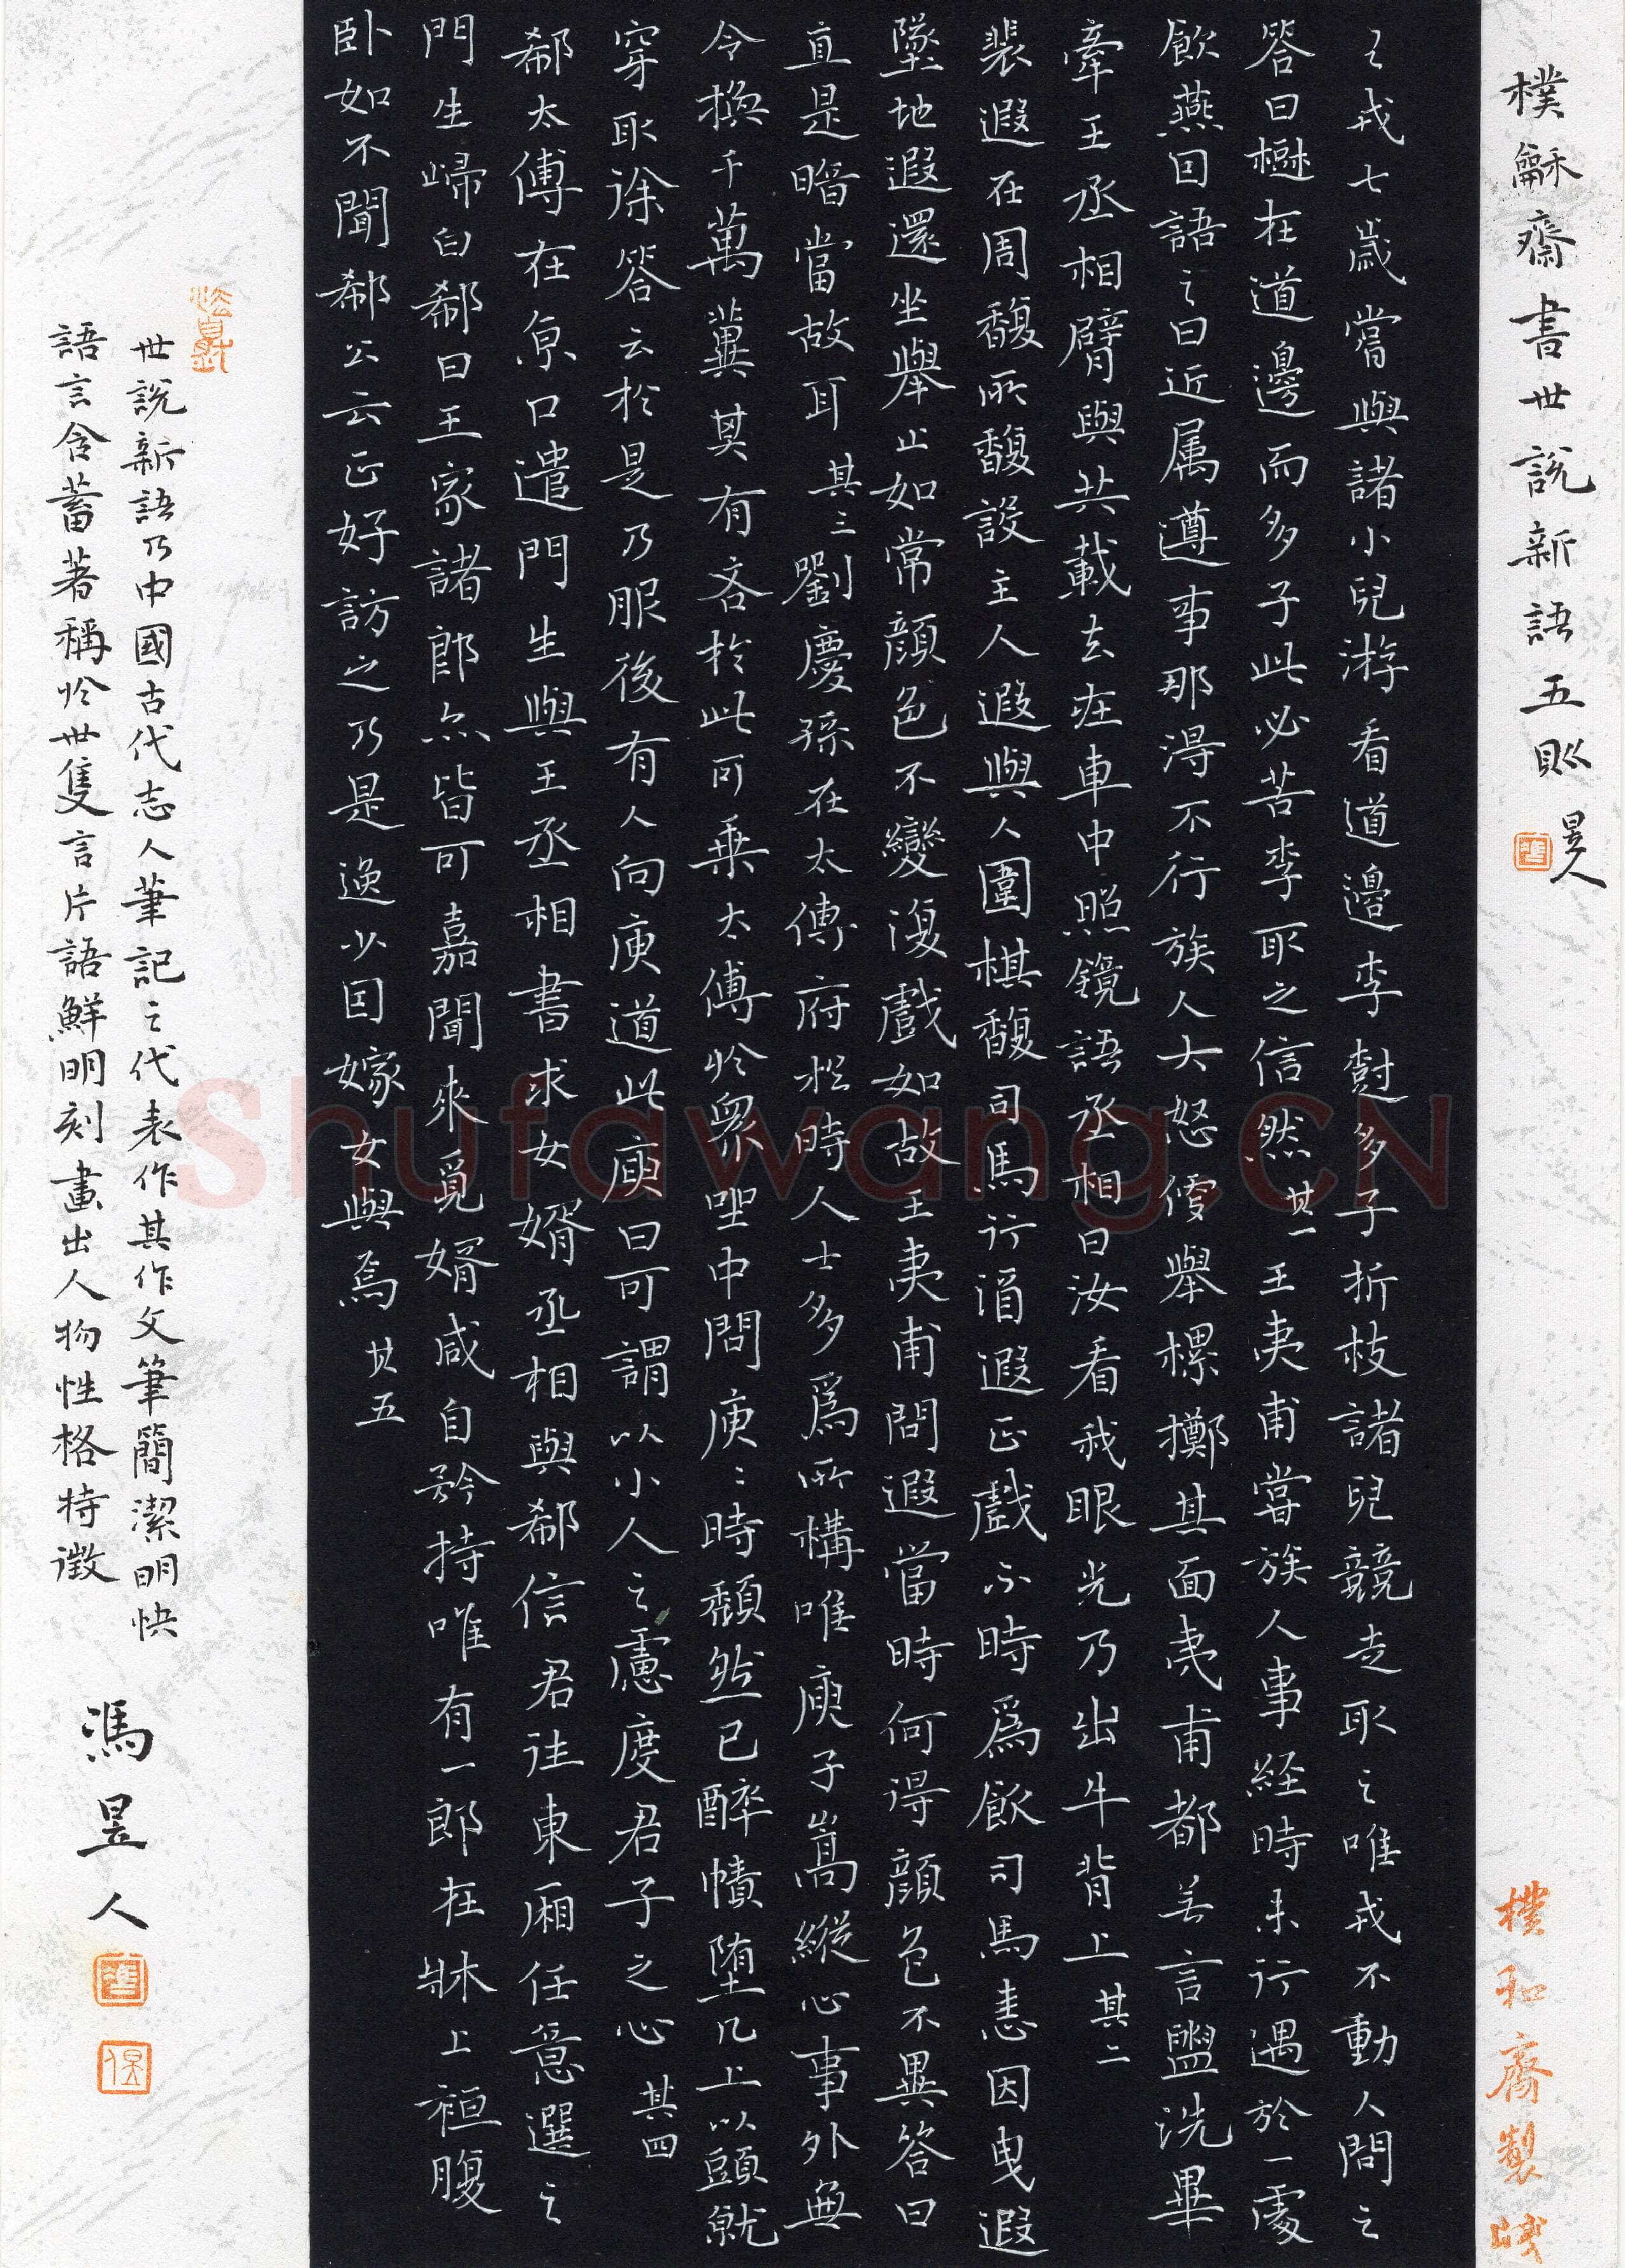 樸龢齋書世說新語五則 昱人
樸和齋製箋
王戎七歲嘗與諸小兒游看道邊李樹多子折枝諸兒競走取之唯戎不動人問之
答曰樹在道邊而多子此必苦李取之信然 其一 王夷甫嘗族人事經時未行遇於一處
飲燕因語之曰近屬尊事那得不行族人大怒便舉樏擲其面夷甫都無言盥洗畢
牽王丞相臂與共載去在車中照鏡語丞相曰汝看我眼光乃出牛背上 其二
裴遐在周馥所馥設主人遐與人圍棋馥司馬行酒遐正戲不時為飲司馬恚因曳遐
墜地遐還坐舉止如常顏色不變復戲如故王夷甫問遐當時何得顏色不異答曰
直是暗當故耳 其三 劉慶孫在太傅府於時人士多為所構唯庾子嵩縱心事外無
令換千萬冀其有吝於此可乘太傅於眾坐中問庾〻時頹然已醉幘墮几上以頭就
穿取徐答云於是乃服後有人向庾道此庾曰可謂以小人之慮度君子之心 其四
郗太傅在京口遣門生與王丞相書求女婿丞相與郗信君往東廂任意選之
門生歸白郗曰王家諸郎亦皆可嘉聞來覓婿咸自矜持唯有一郎在牀上袒腹
臥如不聞郗公云正好訪之乃是逸少因嫁女與焉 其五
世說新語乃中國古代志人筆記之代表作其作文筆簡潔明快
語言含蓄著稱於世隻言片語鮮明刻畫出人物性格特徵
馮昱人
Shufawang.CN